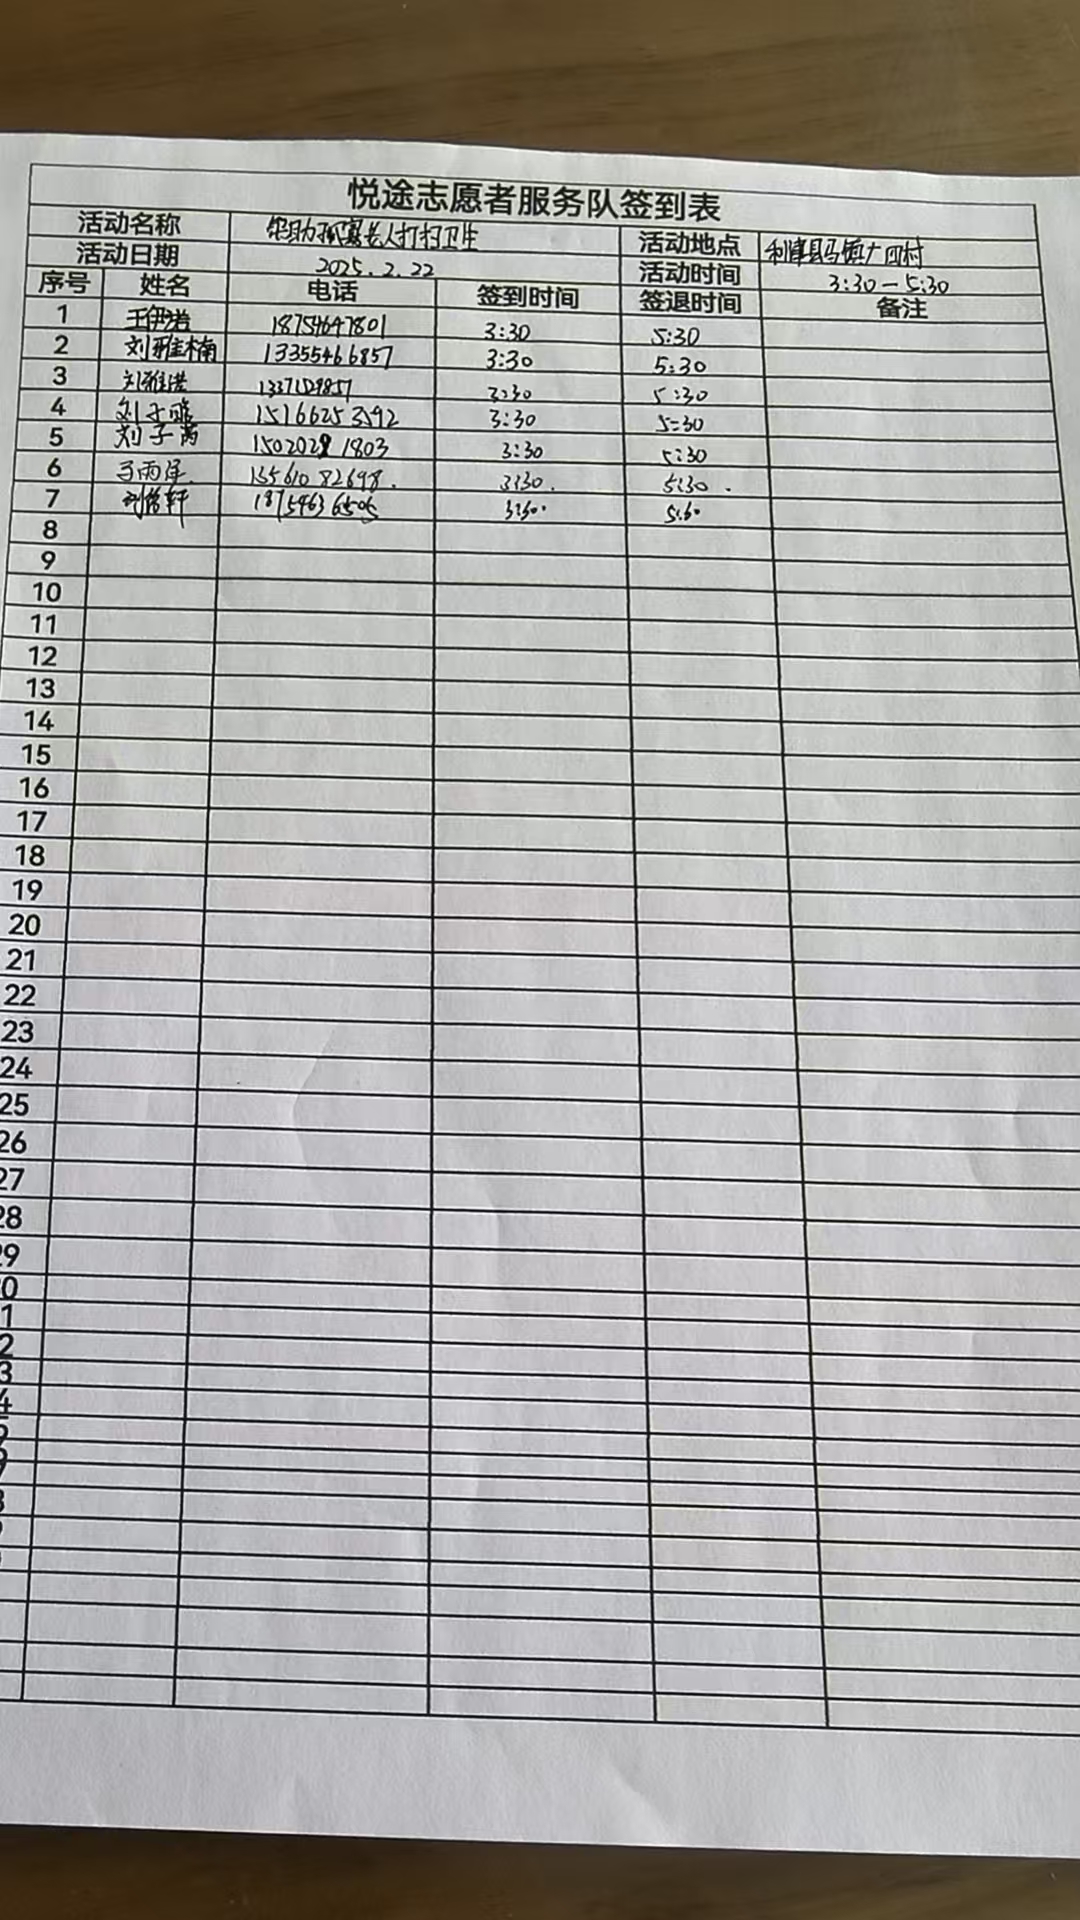 悦途志愿者服务队签到表
活动名称 帮助孤寡老人打扫卫生 活动地点 利津县马镇广四村
活动日期 2025.2.22 活动时间 3:30-5:30
序号 姓名 电话 签到时间 签退时间 备注
1 王伊诺 18754647801 3:30 5:30
2 刘雅楠 13355466857 3:30 5:30
3 刘雅洪 3:30 5:30
4 刘子 15166253592 3:30 5:30
5 刘子 1803 3:30 5:30
6 马雨泽. 15561082698. 3:30. 5:30.
7 轩 3:30.
8
9
10
11
12
13
14
15
16
17
18
19
20
21
22
23
24
25
26
27
28
29